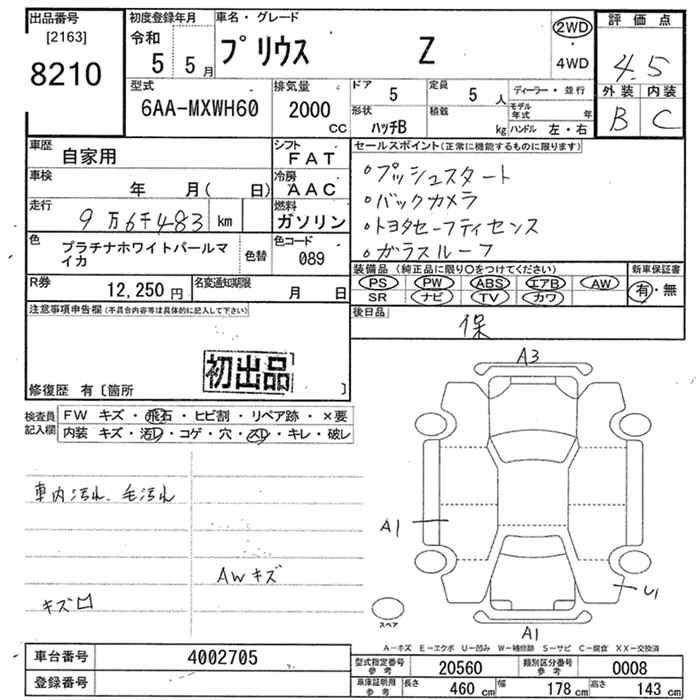 出品番号 [2163] 8210
初度登録年月 令和 5年 5月
車名・グレード プリウス Z
2WD・4WD
評価点 4.5
外装 B 内装 C
型式 6AA-MXWH60
排気量 2000 CC
ドア 5
定員 5 人
ディーラー・並行
形状 ハッチB
積数 kg
モデル年式 年
ハンドル 左・右
車歴 自家用
シフト FAT
車検 年 月( 日)
冷房 AAC
走行 9万6千483 km
燃料 ガソリン
色 プラチナホワイトパールマイカ
色替
色コード 089
R券 12,250 円
名変通知期限 月 日
セールスポイント(正常に機能するものに限ります)
・プッシュスタート
・バックカメラ
・トヨタセーフティセンス
・ガラスルーフ
装備品 (純正品に限り○をつけてください)
PS PW ABS エアB AW
SR ナビ TV カワ
新車保証書 有・無
後日品 保
注意事項申告欄(不具合内容等は具体的に記入して下さい)
初出品
修復歴 有〔箇所 〕
検査員記入欄
FW キズ・飛石・ヒビ割・リペア跡・×要
内装 キズ・汚レ・コゲ・穴・スレ・キレ・破レ
車内汚れ、毛汚れ
AWキズ
キズ
A3
A1
U1
A1
スペア
A−キズ E−エクボ U−凹み W−補修跡 S−サビ C−腐食 XX−交換済
車台番号 4002705
登録番号
型式指定番号 参考 20560
類別区分番号 参考 0008
車庫証明用 参考 長さ 460 cm 幅 178 cm 高さ 143 cm